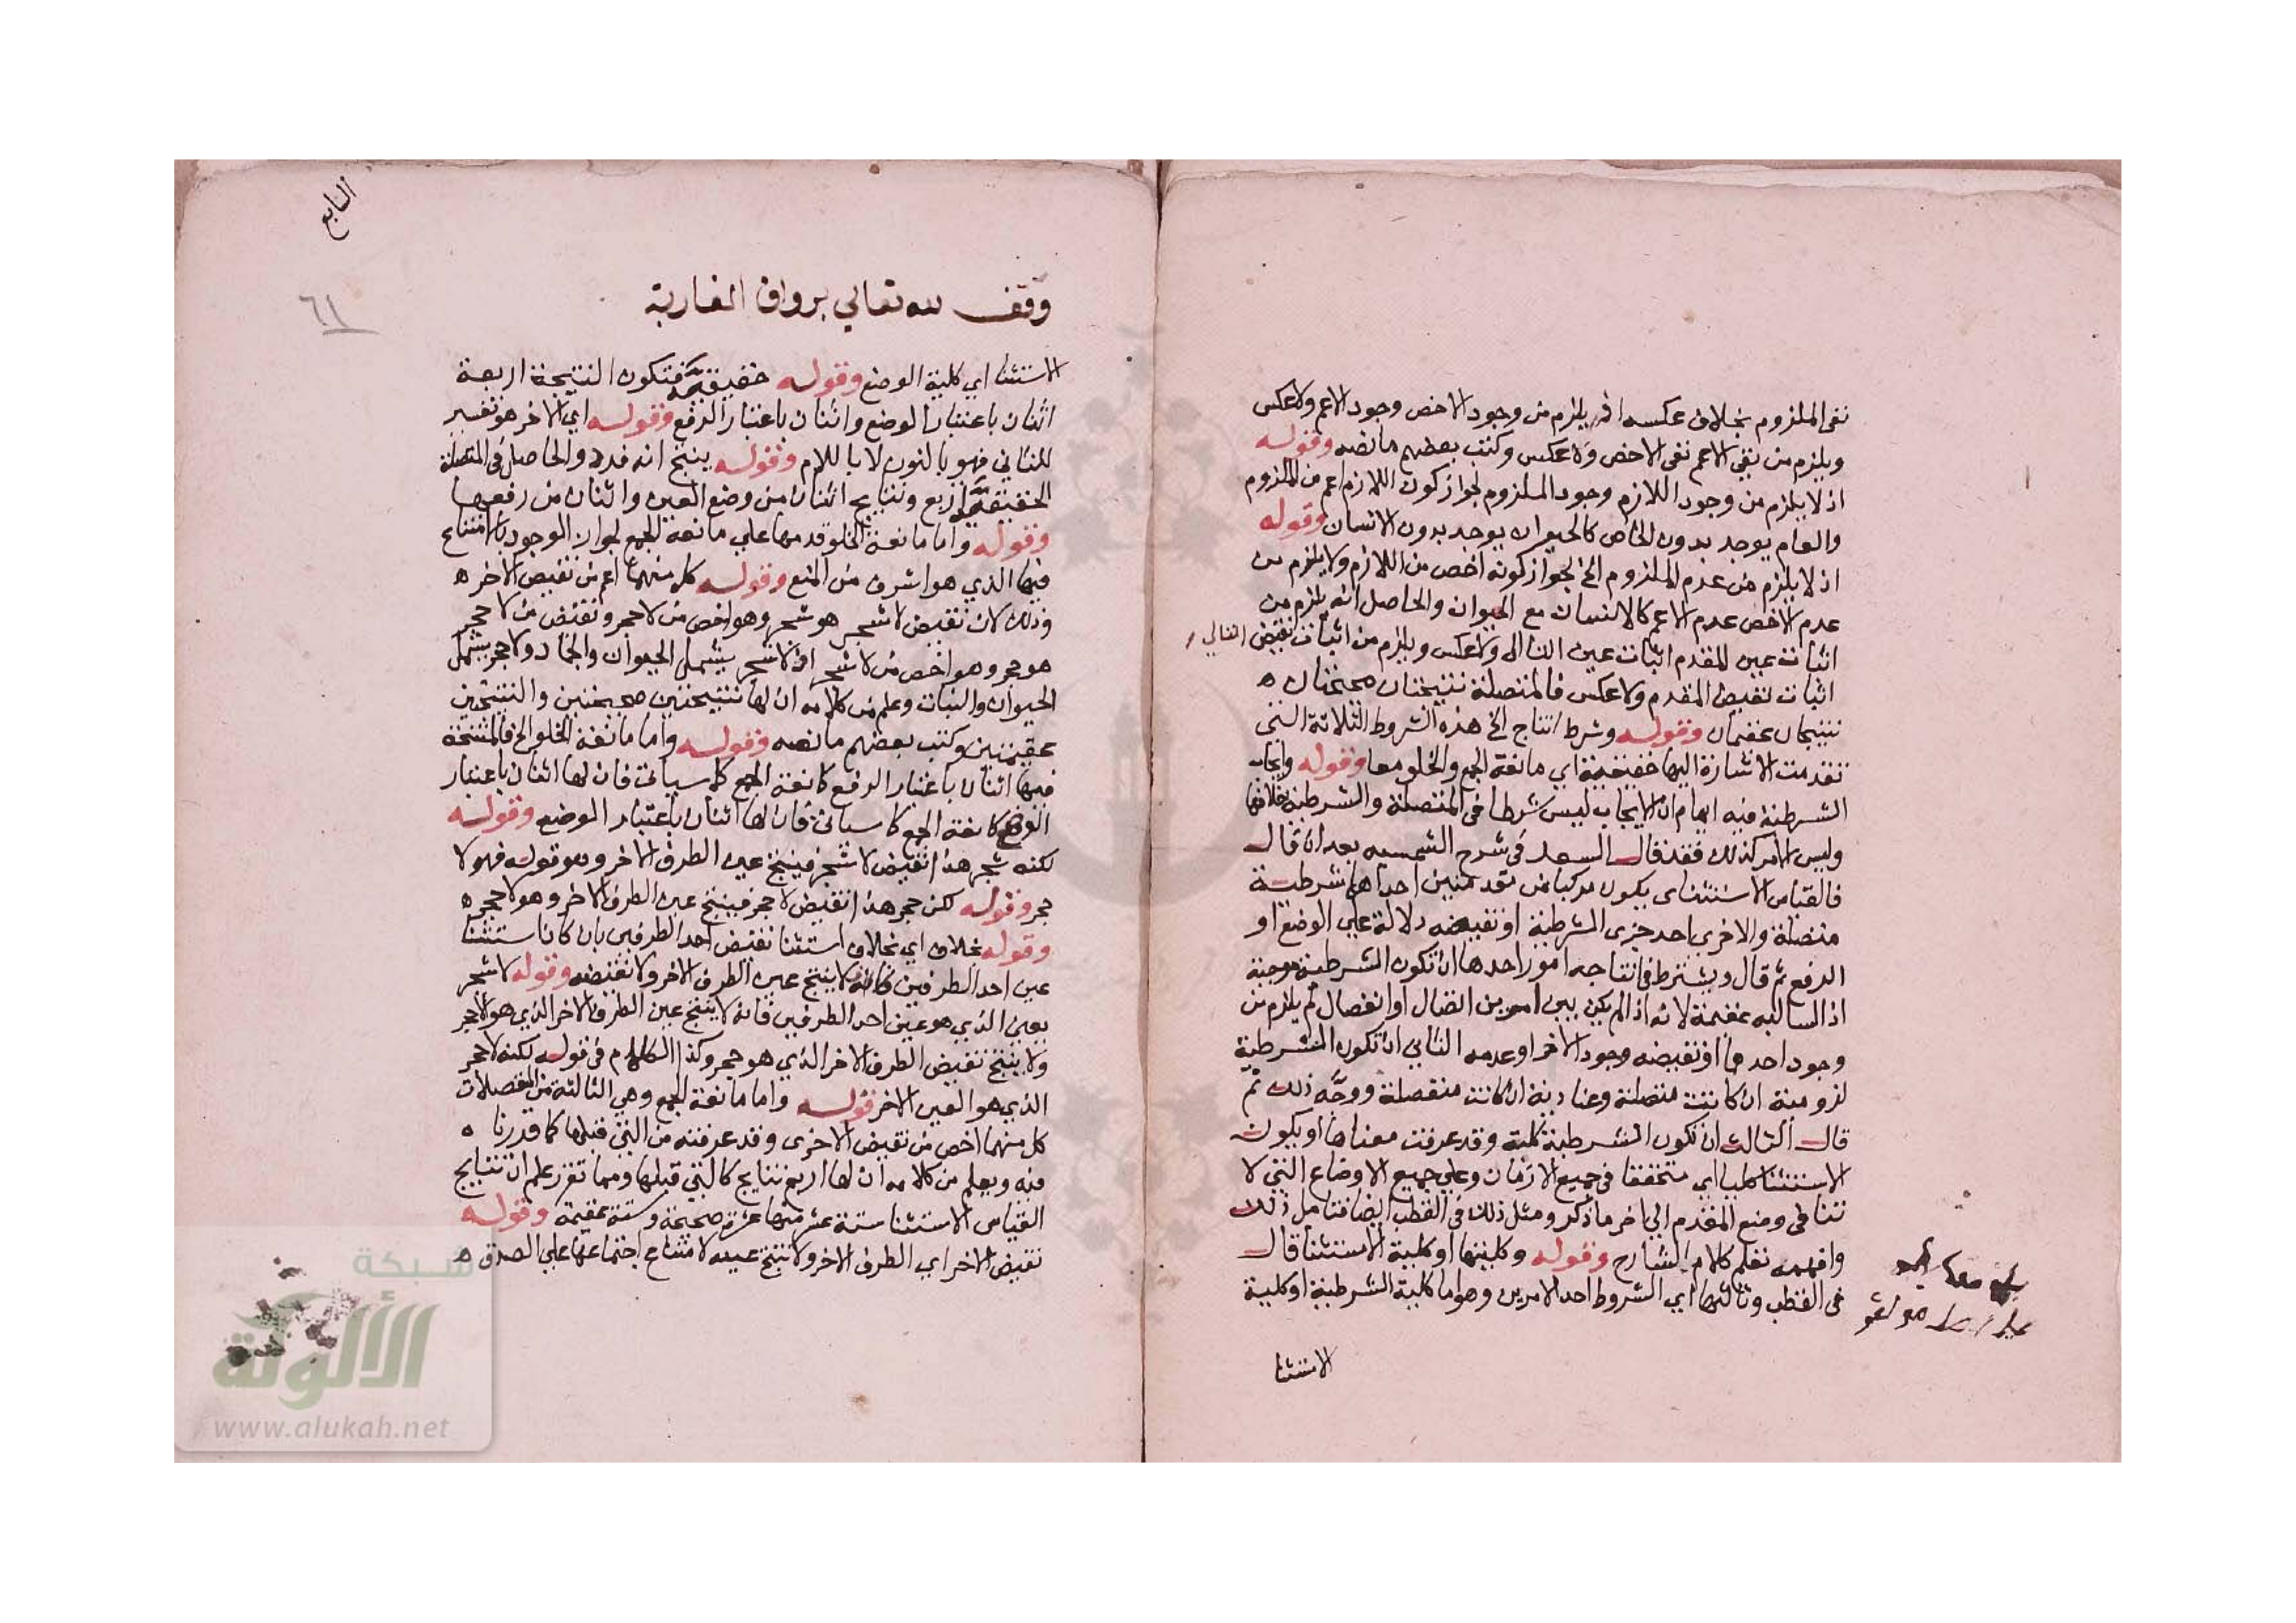 نفي الملزوم بخلاف عكسه اذ يلزم من وجود الاخص وجود الاعم ولا عكس
ويلزم من نفي الاعم نفي الاخص ولا عكس وكتب بعضهم ما نصه وقوله
اذ لا يلزم من وجود اللازم وجود الملزوم لجواز كون اللازم اعم من الملزوم
والعام يوجد بدون الخاص كالحيوان يوجد بدون الانسان وقوله
اذ لا يلزم من عدم الملزوم الخ لجواز كونه اخص من اللازم ولا يلزم من
عدم الاخص عدم الاعم كالانسان مع الحيوان والحاصل انه يلزم من
اثبات عين المقدم اثبات عين التالي ولا عكس ويلزم من اثبات نقيض التالي
اثبات نقيض المقدم ولا عكس فالمتصلة نتيجتان صحيحتان ه
نتيجتان عقيمتان وقوله وشرط انتاج الخ هذه الشروط الثلاثة التي
تقدمت الاشارة اليها حقيقية اي مانعة الجمع والخلو معا وقوله وايجاب
الشرطية فيه ايهام ان الايجاب ليس شرطا في المتصلة والشرطية بخلافها
وليس الامر كذلك فقد قال السعد في شرح الشمسيه بعد ان قال
فالقياس الاستثناي يكون مركبا من مقدمتين احداهما شرطية
متصلة والاخرى احد جزى الشرطية او نقيضه دلالة علي الوضع او
الرفع ثم قال ويشترط في انتاجه امور احدها ان تكون الشرطية موجبة
اذ السالبه عقيمة لانه اذا لم يكن بين امرين اتصال او انفصال لم يلزم من
وجود احدهما او نقيضه وجود الاخر او عدمه الثاني ان تكون الشرطية
لزومية ان كانت متصلة وعنادية ان كانت منفصلة ووجَّه ذلك ثم
قال الثالث ان تكون الشرطية كلية وقد عرفت معناها او يكون
الاستثنا كليا اي متحققا في جميع الازمان وعلي جميع الاوضاع التي لا
تنافي وضع المقدم الي اخر ما ذكر ومثل ذلك في القطب ايضا فتامل ذلك
وافهمه تفهم كلام الشارح وقوله وكليتها او كلية الاستثنا قال
في القطب وثالثها اي الشروط احد الامرين وهو اما كلية الشرطية او كلية
الاستثنا
وقف لله تعالي برواق المغاربة
٦١
الاستثنا اي كلية الوضع وقوله حقيقيَّة فتكون النتيجة اربعة
اثنان باعتبار الوضع واثنان باعتبار الرفع وقوله اي الاخر هو تفسير
للثاني فهو بالنون لا باللام وقوله ينتج انه فرد والحاصل في المتصلة
الحقيقيَّة اربع ونتايج اثنان من وضع العين واثنان من رفعها
وقوله واما مانعة الخلو قدمها علي مانعة الجمع لجواز الوجود بالامتناع
فيها الذي هو اشرف من المنع وقوله كل منهما اعم من نقيض الاخر ه
وذلك لان نقيض لا شجر هو شجر وهو اخص من لا حجر ونقيض من لا حجر
هو حجر وهو اخص من لا شجر اذ لا شجر يشمل الحيوان والجماد ولا حجر يشمل
الحيوان والنبات وعلم من كلامه ان لها نتيجتين صحيحتين والنتيجتين
عقيمتين وكتب بعضهم ما نصه وقوله واما مانعة الخلو الخ فالمنتجة
فيها اثنان باعتبار الرفع كانعة الجمع كما سياتي فان لها اثنان باعتبار
كانعة الجمع كما سياتي فان لها اثنان باعتبار الوضع وقوله
لكنه شجر هذا نقيض لا شجر فينتج عين الطرف الاخر وهو قوله فهو لا
حجر وقوله لكن حجر هذا نقيض لا حجر فينتج عين الطرف الاخر وهو لا حجر ه
وقوله بخلاف اي بخلاف استثنا نقيض احد الطرفين بان كان استثنا
عين احد الطرفين فانه لا ينتج عين الطرف الاخر ولا نقيضه وقوله لا شجر
يعني الذي هو عين احد الطرفين فانه لا ينتج عين الطرف الاخر الذي هو لا حجر
ولا ينتج نقيض الطرف الاخر الذي هو حجر وكذا الكلام في قوله لكنه لا حجر
الذي هو العين الاخر قوله واما مانعة الجمع وهي الثالثة من المنفصلات
كل منهما اخص من نقيض الاخرى وقد عرفته من التي قبلها كما قدرنا ه
فيه ويعلم من كلامه ان لها اربع نتايج كالتي قبلها ومما تقرر علم ان نتايج
القياس الاستثنا ستة عشر منها عشرة صحيحة وستة عقيمة وقوله
نقيض الاخر اي الطرف الاخر ولا ينتج عينه لامتناع اجتماعها علي الصدق ه
شبكة
الألوكة
www.alukah.net